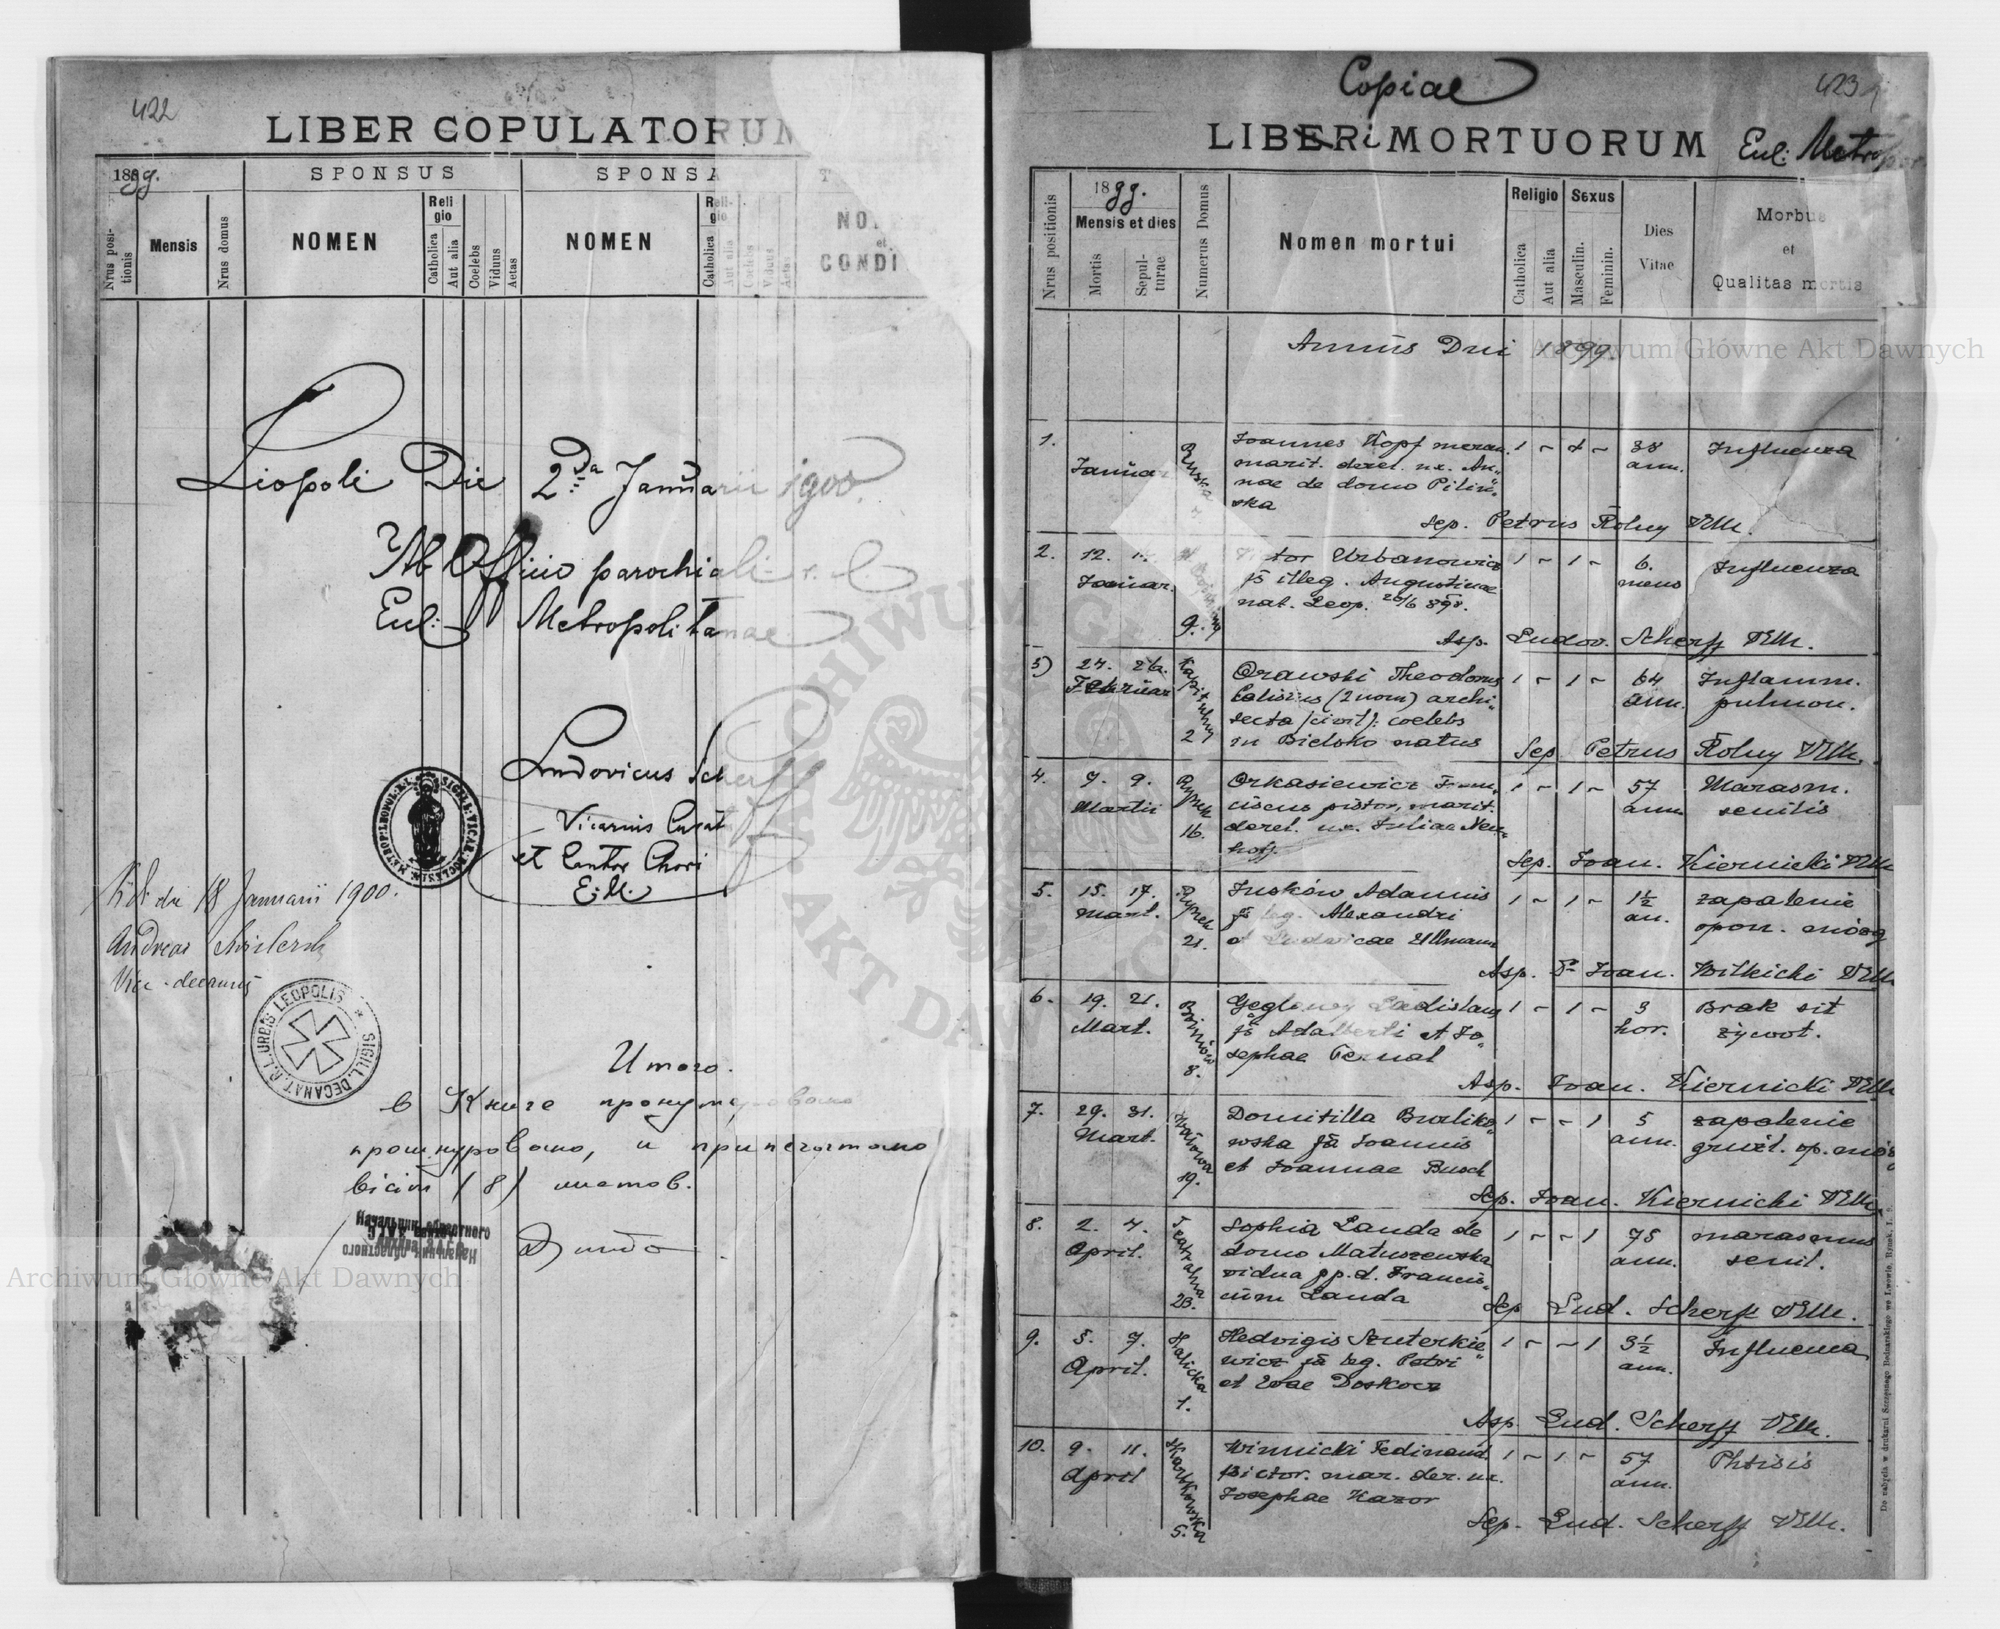 422
LIBER COPULATORUM
1899.
SPONSUS
SPONSA
Nrus positionis
Mensis
Nrus domus
NOMEN
Religio
Catholica
Aut alia
Coelebs
Viduus
Aetas
NOMEN
Religio
Catholica
Aut alia
Coelebs
Vidua
Aetas
et
CONDI
Leopoli Die 2da Januarii 1900.
Ab Officio parochiali r. l.
Eccl: Metropolitanae
Ludovicus Scherff
Vicarius Curat
et Cantor Chori
E.M.
die 18 Januarii 1900.
Andreas
Vice-decanus
SIGILL. DECANAT. R.L. URBIS LEOPOLIS
Итого.
в Книге пронумеровано
прошнуровано, и припечатано
вісім (8) листов.
Начальник областного
Copiae
423
LIBERi MORTUORUM Eccl: Metropol
Nrus positionis
1899.
Mensis et dies
Mortis
Sepulturae
Numerus Domus
Nomen mortui
Religio
Catholica
Aut alia
Sexus
Masculin.
Feminin.
Dies
Vitae
Morbus
et
Qualitas mortis
Annus Dni 1899.
1. Joannes Kopf 1 - 1 - 38 Influenza
Januar marit. derel. ux. An„ ann.
nae de domo Pilin„
ska
Sep. Petrus Rolny VEM.
2. 12. Urbanowicz 1 - 1 - 6. Influenza
Januar. fs illeg. Augustinae mens
9. nat. Leop. 20/6 898.
Asp. Ludov. Scherff VEM.
3) 24. 26. Kapitulny Orawski Theodorus 1 - 1 - 64 Inflamm.
Februar (2 nom) archi„ ann. pulmon.
tecta (civil): coelebs
2 in Bielsko natus
Sep. Petrus Rolny VEM.
4. 7. 9. Rynek Orkasiewicz Fran„ 1 - 1 - 57 Marasm.
Martii ciscus pistor, marit. ann. senilis
16. derel. ux. Juliae Neu„
hoff
Sep. Joan. Kiernicki VEM
5. 15. 17. Rynek Juskow Adamus 1 - 1 - 1½ zapalenie
Mart. fs leg. Alexandri an. opon. mózg
21. et Ludovicae Ullmann
Asp. Joan. Witkicki VEM
6. 19. 21. Ladislaus 1 - 1 - 3 Brak sił
Mart. fs Adalberti et Jo„ hor. żywot.
8. sephae Pernal
Asp. Joan. Kiernicki VEM
7. 29. 31. Domitilla Broliko„ 1 - - 1 5 zapalenie
Mart. wska fa Joannis ann. gruźl. op. mózg
19. et Joannae Busch
Sep. Joan. Kiernicki VEM.
8. 2. 4. Teatralna Sophia Landa de 1 - - 1 75 marasmus
April. domo Matuszewska ann. senil.
vidua p. p. d. Francis„
23. cum Landa
Sep Lud. Scherff VEM.
9. 5. 7. Halicka Hedvigis Szuterkie„ 1 - - 1 3½ Influenza
April. wicz fa leg. Petri ann.
1. et Evae Doskocz
Asp. Lud. Scherff VEM.
10. 9. 11. Skarbkowska Winnicki Ferdinand. 1 - 1 - 57 Phtisis
April Pictor. mar. der. ux. ann.
5. Josephae Kazor
Sep. Lud. Scherff VEM.
Do nabycia w drukarni Szczęsnego Bednarskiego we Lwowie, Rynek, l. 9.
Archiwum Główne Akt Dawnych
Archiwum Główne Akt Dawnych
ARCHIWUM GŁÓWNE AKT DAWNYCH